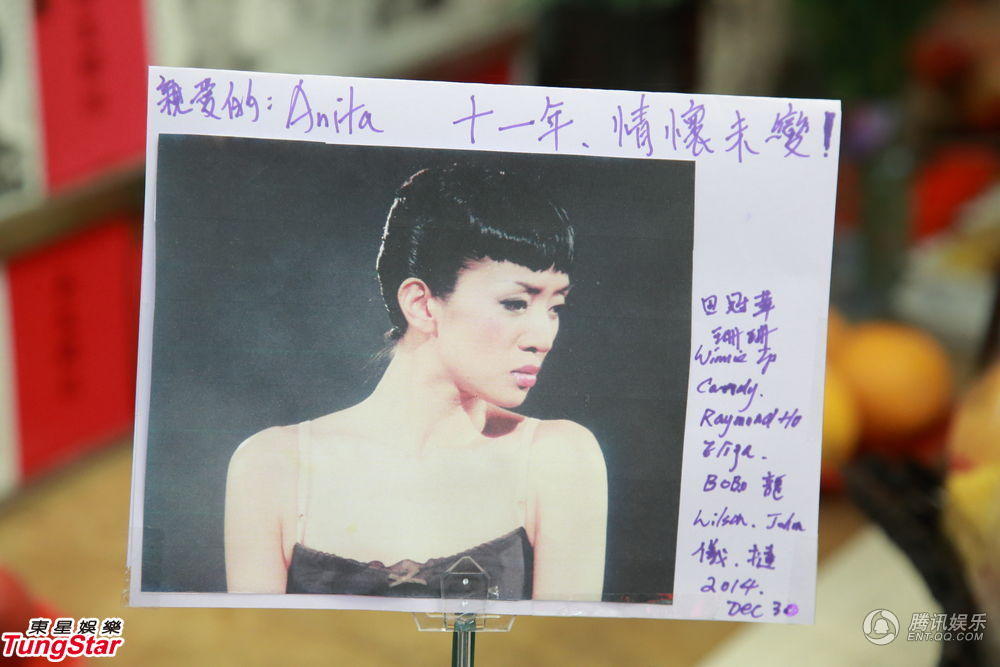 親愛的：Anita 十一年、情懷未變！
田冠華
珊珊
Winnie Ip
Candy.
Raymond Ho
Eliza.
BoBo 龍
Wilson. John
儀.
2014.
Dec 30
東星娛樂
TungStar
腾讯娱乐
ENT.QQ.COM